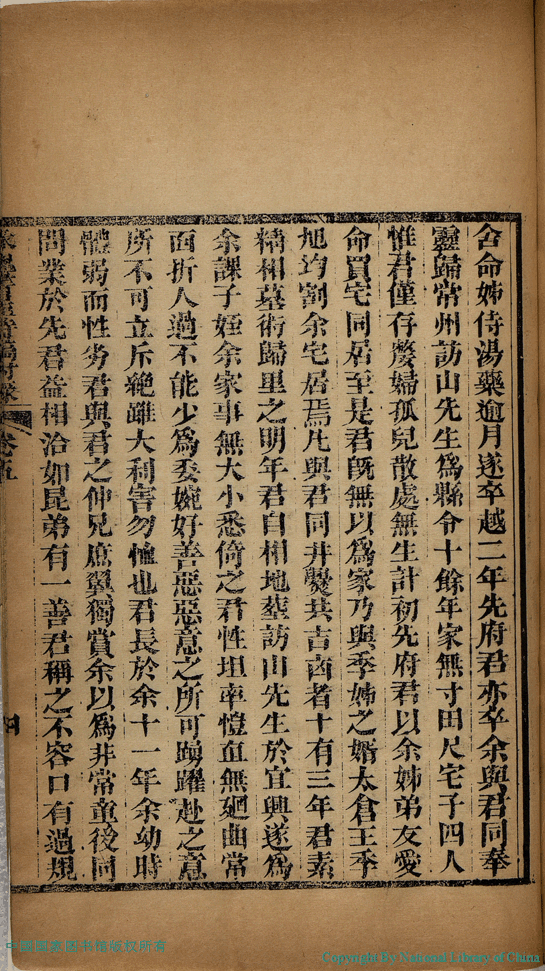 舍命姊侍湯藥逾月遂卒越二年先府君亦卒余與君同奉
靈歸常州訪山先生為縣令十餘年家無寸田尺宅子四人
惟君僅存嫠婦孤兒散處無生計初先府君以余姊弟友愛
命買宅同居至是君既無以為家乃與季姊之婿太倉王季
旭均割余宅居焉凡與君同井爨共吉凶者十有三年君素
精相墓術歸里之明年君自相地葬訪山先生於宜興遂為
余課子姪余家事無大小悉倚之君性坦率愷直無廻曲常
面折人過不能少為委婉好善惡惡意之所可踴躍赴之意
所不可立斥絕雖大利害勿恤也君長於余十一年余幼時
體弱而性劣君與君之仲兄庶翼獨賞余以為非常童後同
問業於先君益相洽如昆弟有一善君稱之不容口有過規
卷五
四
中國國家图书館版权所有
Copyright By National Library of China